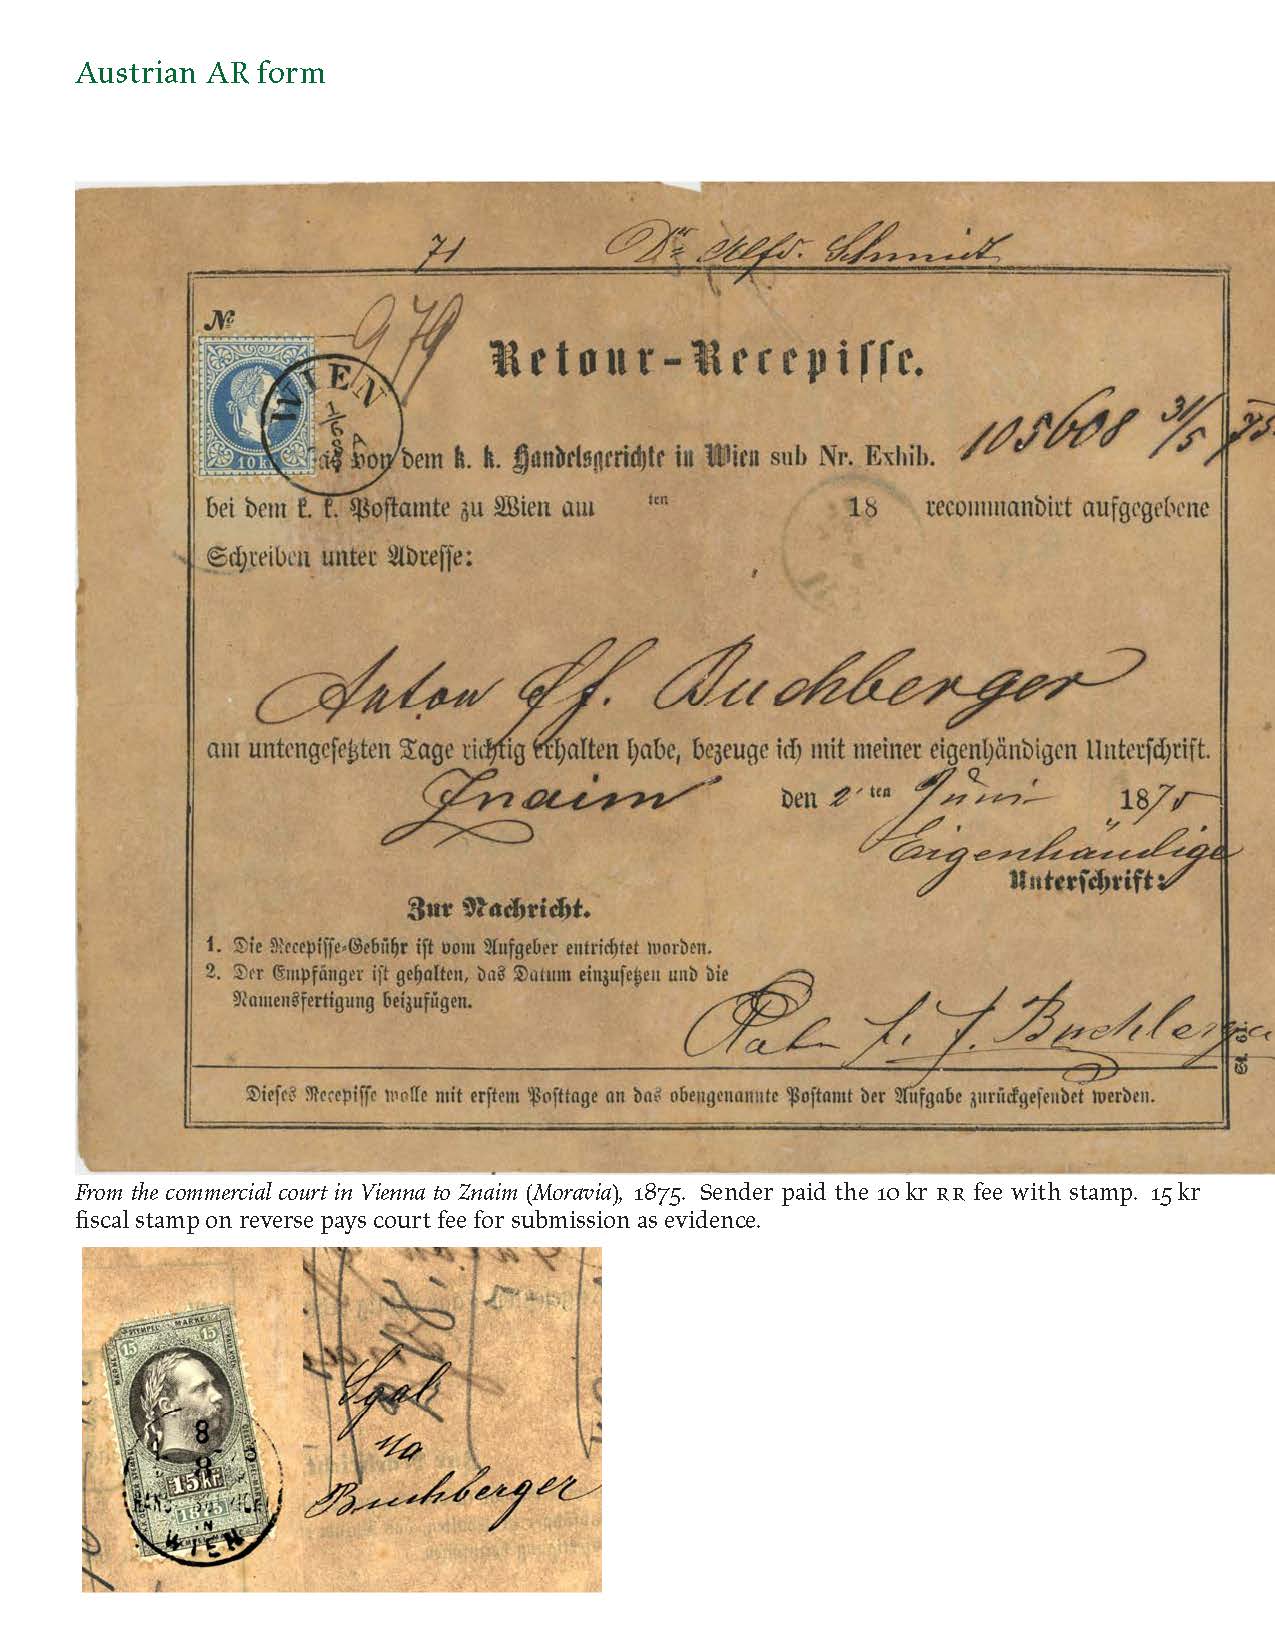 Austrian AR form
71 Dr Alfd. Schmidt
No
979
Retour-Recepisse.
10 kr
WIEN
1/6
Das von dem k. k. Handelsgerichte in Wien sub Nr. Exhib. 105608 31/5 75
bei dem k. k. Postamte zu Wien am ten 18 recommandirt aufgegebene
Schreiben unter Adresse:
Anton Buchberger
am untengesetzten Tage richtig erhalten habe, bezeuge ich mit meiner eigenhändigen Unterschrift.
Znaim den 2 ten Juni 1875
Eigenhändige
Unterschrift:
Zur Nachricht.
1. Die Recepisse-Gebühr ist vom Aufgeber entrichtet worden.
2. Der Empfänger ist gehalten, das Datum einzusetzen und die
Namensfertigung beizufügen.
Buchberger
Dieses Recepisse wolle mit erstem Posttage an das obengenannte Postamt der Aufgabe zurückgesendet werden.
From the commercial court in Vienna to Znaim (Moravia), 1875. Sender paid the 10 kr RR fee with stamp. 15 kr
fiscal stamp on reverse pays court fee for submission as evidence.
STEMPEL MARKE
15 15
8
8
15 kr
1875
IN
WIEN
Buchberger